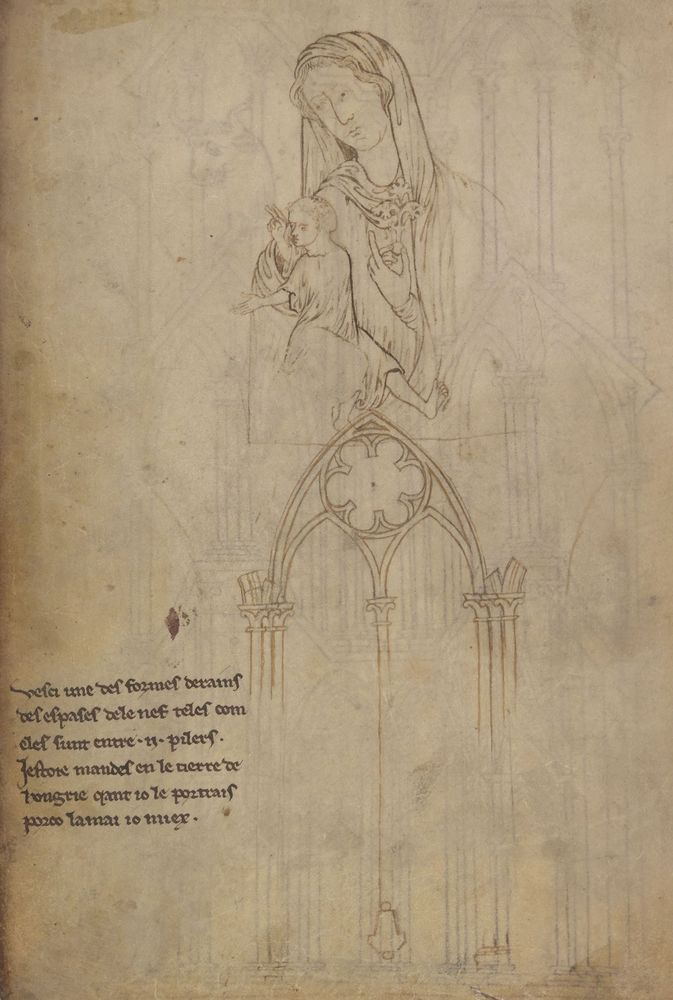 vesci une des formes derains
des espases dele nef teles com
eles sunt entre · ii · pilers ·
Jestoie mandes en le tierre de
hongrie qant io le portrais
porco lamai io miex ·